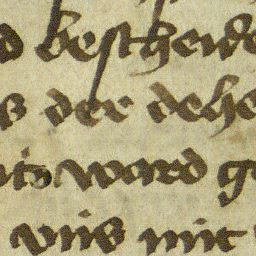 d bescheide
s der dehe
ito ward g
vns mit